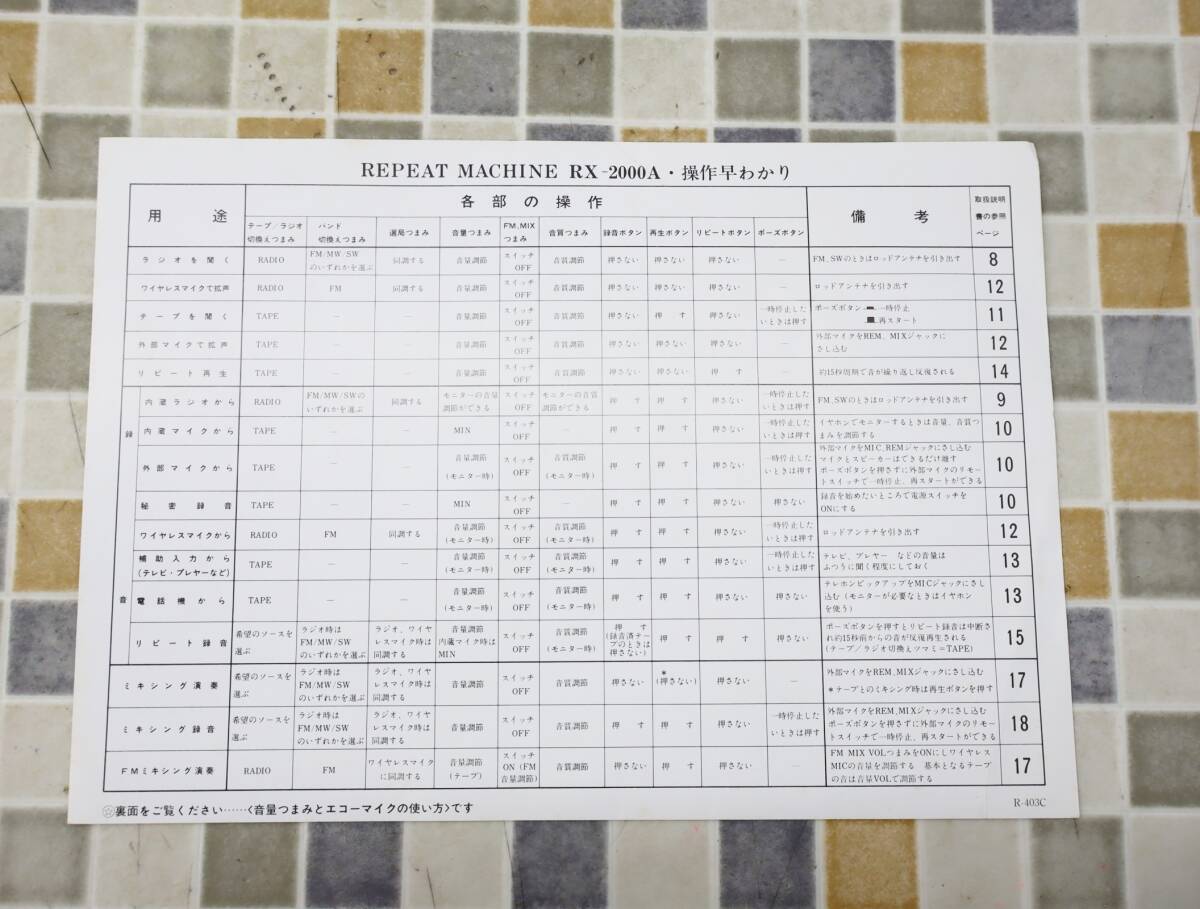 REPEAT MACHINE RX-2000A・操作早わかり
用途 各部の操作 備考 取扱説明書の参照ページ
テープ/ラジオ切換えつまみ バンド切換えつまみ 選局つまみ 音量つまみ FM,MIXつまみ 音質つまみ 録音ボタン 再生ボタン リピートボタン ポーズボタン
ラジオを聞く RADIO FM/MW/SWのいずれかを選ぶ 同調する 音量調節 スイッチOFF 音質調節 押さない 押さない 押さない — FM、SWのときはロッドアンテナを引き出す 8
ワイヤレスマイクで拡声 RADIO FM 同調する 音量調節 スイッチOFF 音質調節 押さない 押さない 押さない — ロッドアンテナを引き出す 12
テープを聞く TAPE — — 音量調節 スイッチOFF 音質調節 押さない 押す 押さない 一時停止したいときは押す ポーズボタン 一時停止 再スタート 11
外部マイクで拡声 TAPE — — 音量調節 スイッチOFF 音質調節 押さない 押さない 押さない — 外部マイクをREM、MIXジャックにさし込む 12
リピート再生 TAPE — — 音量調節 スイッチOFF 音質調節 押さない 押さない 押す — 約15秒周期で音が繰り返し反復される 14
録音
内蔵ラジオから RADIO FM/MW/SWのいずれかを選ぶ 同調する モニターの音量調節ができる スイッチOFF モニターの音質調節ができる 押す 押す 押さない 一時停止したいときは押す FM、SWのときはロッドアンテナを引き出す 9
内蔵マイクから TAPE — — MIN スイッチOFF — 押す 押す 押さない 一時停止したいときは押す イヤホンでモニターするときは音量、音質つまみを調節する 10
外部マイクから TAPE — — 音量調節(モニター時) スイッチOFF 音質調節(モニター時) 押す 押す 押さない 一時停止したいときは押す 外部マイクをMIC、REMジャックにさし込む マイクとスピーカーはできるだけ離す ポーズボタンを押さずに外部マイクのリモートスイッチで一時停止、再スタートができる 10
秘密録音 TAPE — — MIN スイッチOFF — 押す 押す 押さない 押さない 録音を始めたいところで電源スイッチをONにする 10
ワイヤレスマイクから RADIO FM 同調する 音量調節(モニター時) スイッチOFF 音質調節(モニター時) 押す 押す 押さない 一時停止したいときは押す ロッドアンテナを引き出す 12
補助入力から(テレビ・プレヤーなど) TAPE — — 音量調節(モニター時) スイッチOFF 音質調節(モニター時) 押す 押す 押さない 一時停止したいときは押す テレビ、プレヤー などの音量はふつうに聞く程度にしておく 13
電話機から TAPE — — 音量調節(モニター時) スイッチOFF 音質調節(モニター時) 押す 押す 押さない 押さない テレホンピックアップをMICジャックにさし込む(モニターが必要なときはイヤホンを使う) 13
リピート録音 希望のソースを選ぶ ラジオ時はFM/MW/SWのいずれかを選ぶ ラジオ、ワイヤレスマイク時は同調する 音量調節 内蔵マイク時はMIN スイッチOFF 音質調節(モニター時) 押す(録音済テープのときは押さない) 押す 押す 押さない ポーズボタンを押すとリピート録音は中断され約15秒前からの音が反復再生される(テープ/ラジオ切換えツマミ=TAPE) 15
ミキシング演奏 希望のソースを選ぶ ラジオ時はFM/MW/SWのいずれかを選ぶ ラジオ、ワイヤレスマイク時は同調する 音量調節 スイッチOFF 音質調節 押さない *(押さない) 押さない — 外部マイクをREM、MIXジャックにさし込む *テープとのミキシング時は再生ボタンを押す 17
ミキシング録音 希望のソースを選ぶ ラジオ時はFM/MW/SWのいずれかを選ぶ ラジオ、ワイヤレスマイク時は同調する 音量調節 スイッチOFF 音質調節 押す 押す 押さない 一時停止したいときは押す 外部マイクをREM、MIXジャックにさし込む ポーズボタンを押さずに外部マイクのリモートスイッチで一時停止、再スタートができる 18
FMミキシング演奏 RADIO FM ワイヤレスマイクに同調する 音量調節(テープ) スイッチON(FM音量調節) 音質調節 押さない 押す 押さない — FM MIX VOLつまみをONにしワイヤレスMICの音量を調節する 基本となるテープの音は音量VOLで調節する 17
☆裏面をご覧ください……〈音量つまみとエコーマイクの使い方〉です
R-403C